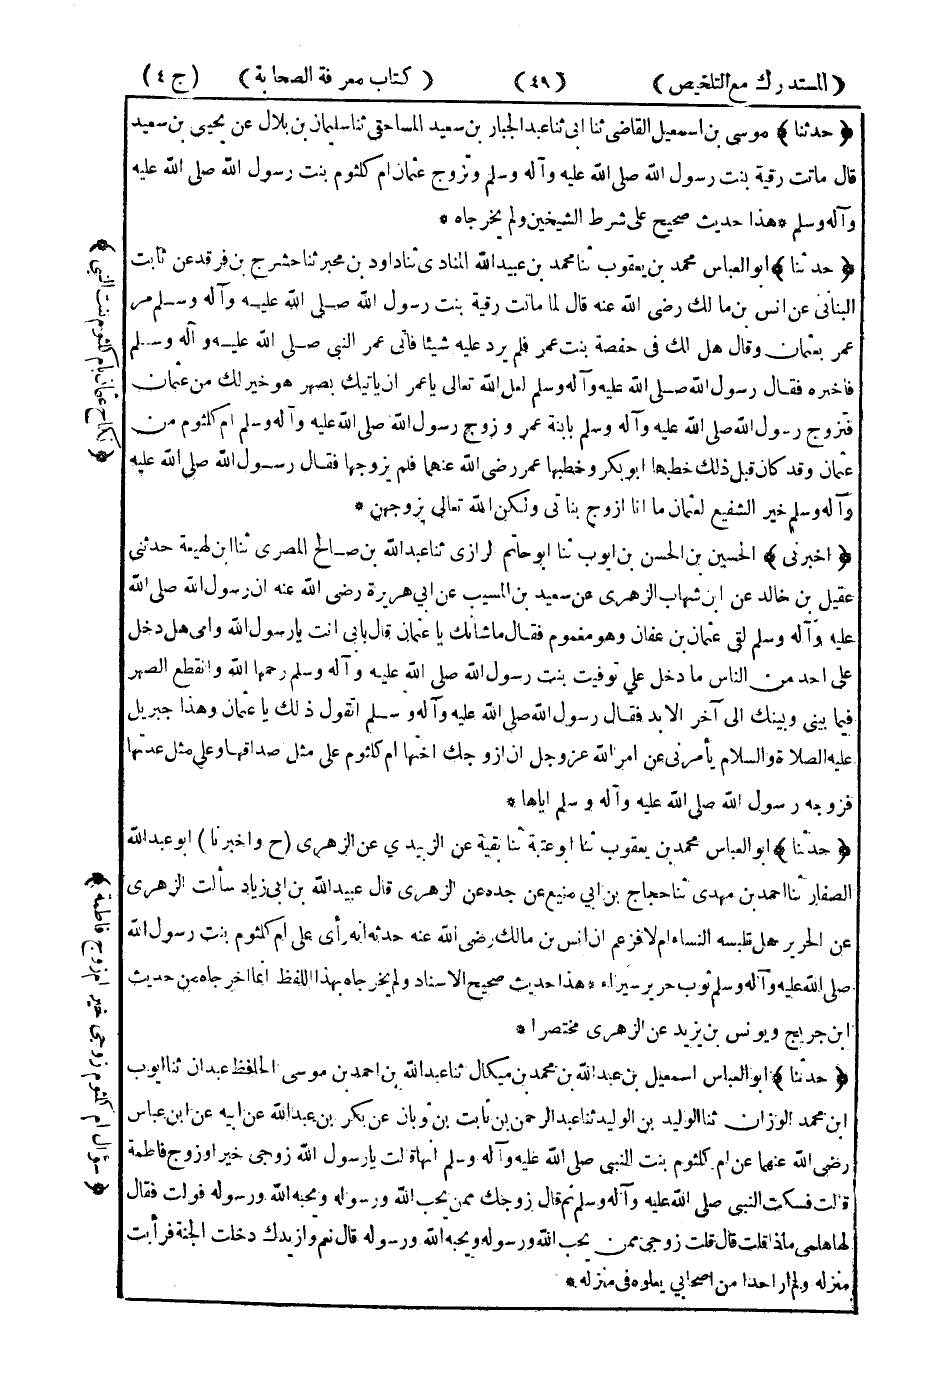 (المستدرك مع التلخيص) (٤٩) (كتاب معرفة الصحابة) (ج ٤)
﴿ حدثنا ﴾ موسى بن اسمعيل القاضى ثنا ابى ثنا عبد الجبار بن سعيد المساحقى ثنا سليمان بن بلال عن يحيى بن سعيد
قال ماتت رقية بنت رسول الله صلى الله عليه وآله وسلم وتزوج عثمان ام كلثوم بنت رسول الله صلى الله عليه
وآله وسلم * هذا حديث صحيح على شرط الشيخين ولم يخرجاه *
﴿ حدثنا ﴾ ابو العباس محمد بن يعقوب ثنا محمد بن عبيد الله المنادى ثنا داود بن محبر ثنا حشرج بن فرقد عن ثابت
البنانى عن انس بن مالك رضى الله عنه قال لما ماتت رقية بنت رسول الله صلى الله عليه وآله وسلم مر
عمر بعثمان وقال هل لك فى حفصة بنت عمر فلم يرد عليه شيئا فاتى عمر النبي صلى الله عليه وآله وسلم
فاخبره فقال رسول الله صلى الله عليه وآله وسلم لعل الله تعالى يا عمر ان يأتيك بصهر هو خير لك من عثمان
فتزوج رسول الله صلى الله عليه وآله وسلم بابنة عمر وزوج رسول الله صلى الله عليه وآله وسلم ام كلثوم من
عثمان وقد كان قبل ذلك خطبها ابو بكر وخطبها عمر رضى الله عنهما فلم يزوجها فقال رسول الله صلى الله عليه
وآله وسلم خير الشفيع لعثمان ما انا ازوج بناتى ولكن الله تعالى يزوجهن *
﴿ اخبرنى ﴾ الحسين بن الحسن بن ايوب ثنا ابو حاتم الرازى ثنا عبد الله بن صالح المصرى ثنا ابن لهيعة حدثنى
عقيل بن خالد عن ابن شهاب الزهرى عن سعيد بن المسيب عن ابي هريرة رضى الله عنه ان رسول الله صلى الله
عليه وآله وسلم لقى عثمان بن عفان وهو مغموم فقال ما شأنك يا عثمان قال بابى انت يا رسول الله وامى هل دخل
على احد من الناس ما دخل علي توفيت بنت رسول الله صلى الله عليه وآله وسلم رحمها الله وانقطع الصهر
فيما بينى وبينك الى آخر الابد فقال رسول الله صلى الله عليه وآله وسلم اتقول ذلك يا عثمان وهذا جبريل
عليه الصلاة والسلام يأمرنى عن امر الله عز وجل ان ازوجك اختها ام كلثوم على مثل صداقها وعلى مثل عدتها
فزوجه رسول الله صلى الله عليه وآله وسلم اياها *
﴿ حدثنا ﴾ ابو العباس محمد بن يعقوب ثنا ابو عتبة ثنا بقية عن الزبيدي عن الزهرى (ح واخبرنا) ابو عبد الله
الصفار ثنا احمد بن مهدى ثنا حجاج بن ابي منيع عن جده عن الزهرى قال عبيد الله بن ابى زياد سألت الزهرى
عن الحرير هل تلبسه النساء ام لا فزعم ان انس بن مالك رضى الله عنه حدثه انه رأى على ام كلثوم بنت رسول الله
صلى الله عليه وآله وسلم ثوب حرير سيراء * هذا حديث صحيح الاسناد ولم يخرجاه بهذا اللفظ انما اخرجاه من حديث
ابن جريج ويونس بن يزيد عن الزهرى مختصرا *
﴿ حدثنا ﴾ ابو العباس اسمعيل بن عبد الله بن محمد بن ميكال ثنا عبد الله بن احمد بن موسى الحافظ عبدان ثنا ايوب
ابن محمد الوزان ثنا الوليد بن الوليد ثنا عبد الرحمن بن ثابت بن ثوبان عن بكر بن عبد الله عن ابيه عن ابن عباس
رضى الله عنهما عن ام كلثوم بنت النبي صلى الله عليه وآله وسلم انها قالت يا رسول الله زوجى خير او زوج فاطمة
قالت فسكت النبى صلى الله عليه وآله وسلم ثم قال زوجك ممن يحب الله ورسوله ويحبه الله ورسوله فولت فقال
لها هلمى ماذا قلت قال قلت زوجى ممن يحب الله ورسوله ويحبه الله ورسوله قال نعم وازيدك دخلت الجنة فرأيت
منزله ولم ار احدا من اصحابي يعلوه فى منزله *
﴿ نكاح عثمان بام كلثوم بنت النبي ﴾
﴿ سؤال ام كلثوم زوجى خير ام زوج فاطمة ﴾